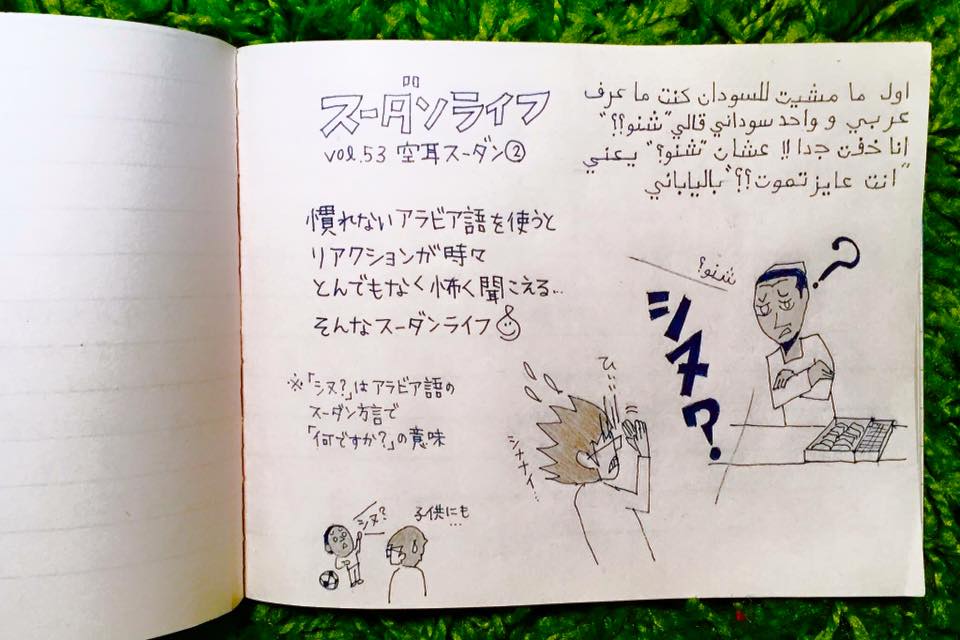 スーダンライフ
vol.53 空耳スーダン②
اول ما مشيت للسودان كنت ما عرف
عربي و واحد سوداني قالي "شنو؟؟"
انا خفت جدا!! عشان "شنو؟" يعني
"انت عايز تموت؟؟" بالياباني
慣れないアラビア語を使うと
リアクションが時々
とんでもなく怖く聞こえる…
そんなスーダンライフ
※「シヌ?」はアラビア語の
スーダン方言で
「何ですか?」の意味
شنو؟
?
シヌ?
ひいい
シナナイ…
シヌ?
子供にも…